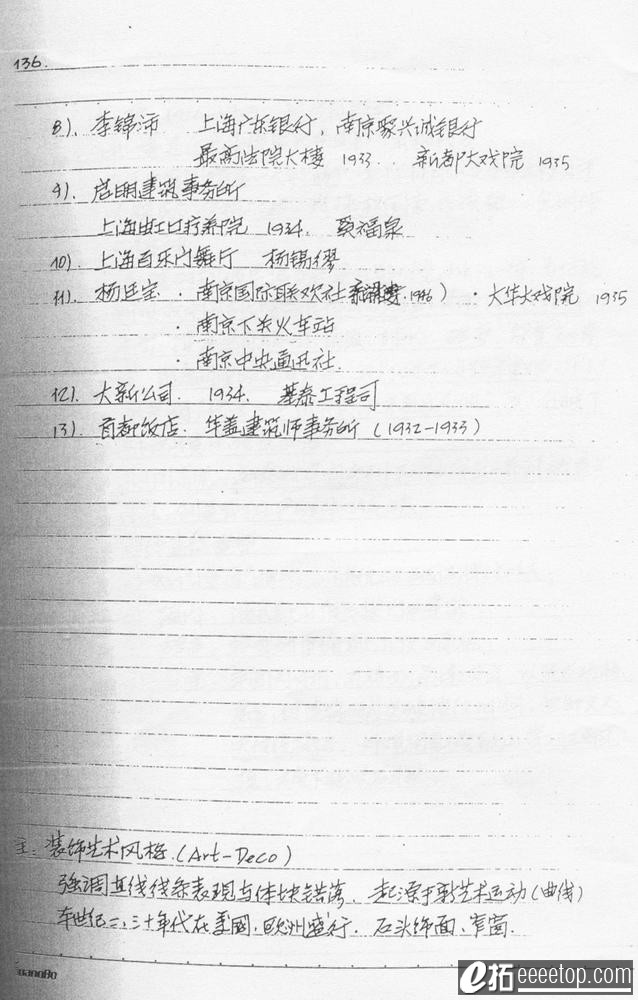 136.
8). 李锦沛 上海广东银行, 南京聚兴诚银行
最高法院大楼 1933. 新都大戏院 1935
9). 启明建筑事务所
上海虹口疗养院 1934. 奚福泉
10). 上海百乐门舞厅 杨锡镠
11). 杨廷宝 · 南京国际联欢社 1936) · 大华大戏院 1935
· 南京下关火车站
· 南京中央通讯社.
12). 大新公司. 1934. 基泰工程司
13). 首都饭店. 华盖建筑师事务所 (1932-1933)
注: 装饰艺术风格. (Art-Deco)
强调直线线条表现与体块错落. 起源于新艺术运动(曲线)
本世纪二、三十年代在美国、欧洲盛行. 石头饰面、窄窗.
GuangBo
e拓 eeeetop.com